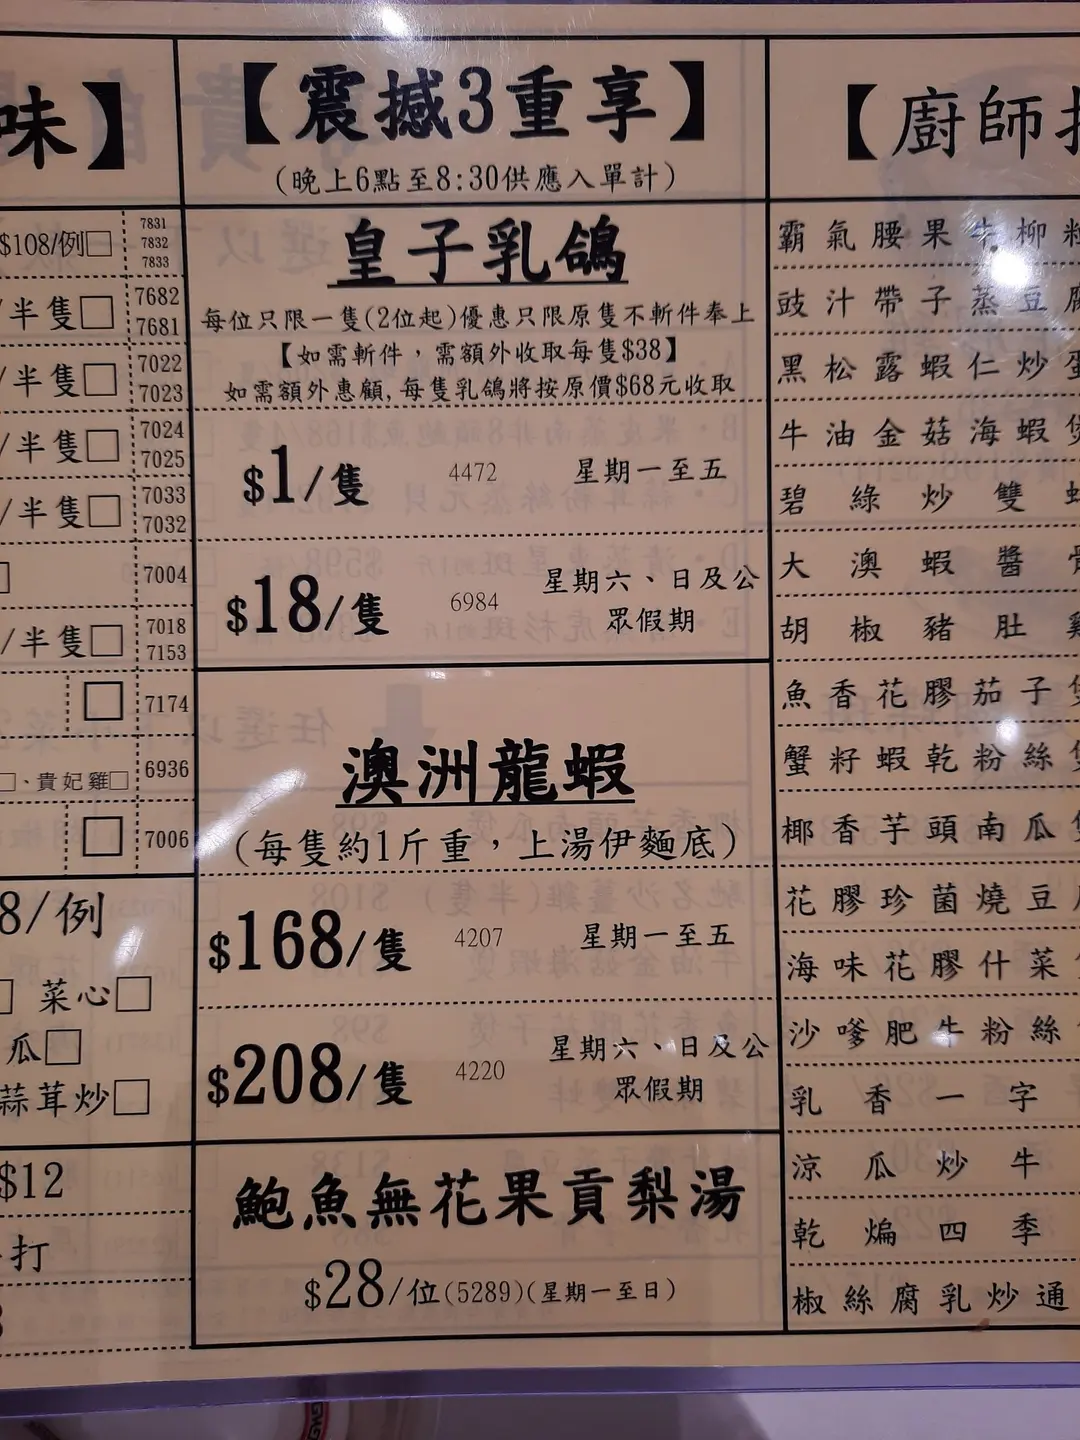 味】
$108/例□ 7831
7832
7833
/半隻□ 7682
7681
/半隻□ 7022
7023
/半隻□ 7024
7025
/半隻□ 7033
7032
7004
/半隻□ 7018
7153
□ 7174
□、貴妃雞□ 6936
□ 7006
8/例
菜心□
瓜□
蒜茸炒□
$12
打
【震撼3重享】
(晚上6點至8:30供應入單計)
皇子乳鴿
每位只限一隻(2位起)優惠只限原隻不斬件奉上
【如需斬件，需額外收取每隻$38】
如需額外惠顧,每隻乳鴿將按原價$68元收取
$1/隻 4472 星期一至五
$18/隻 6984 星期六、日及公
眾假期
澳洲龍蝦
(每隻約1斤重，上湯伊麵底)
$168/隻 4207 星期一至五
$208/隻 4220 星期六、日及公
眾假期
鮑魚無花果貢梨湯
$28/位(5289)(星期一至日)
【廚師
霸氣腰果牛柳粒
豉汁帶子蒸豆腐
黑松露蝦仁炒蛋
牛油金菇海蝦煲
碧綠炒雙
大澳蝦醬
胡椒豬肚雞
魚香花膠茄子煲
蟹籽蝦乾粉絲煲
椰香芋頭南瓜煲
花膠珍菌燒豆
海味花膠什菜煲
沙嗲肥牛粉絲
乳香一字
涼瓜炒牛
乾煸四季
椒絲腐乳炒通